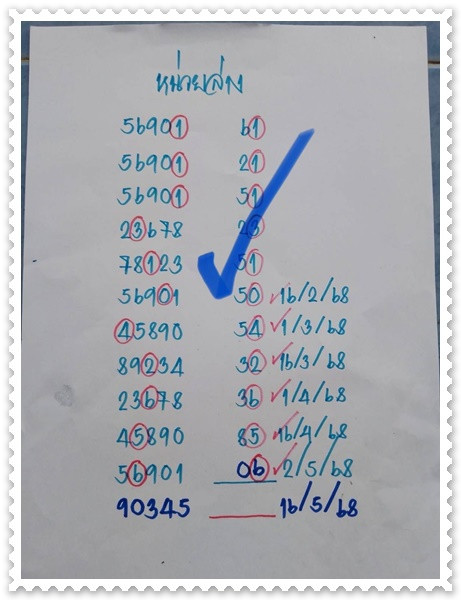 หน่วยล่าง
56901 61
56901 21
56901 51
23678 23
78123 51
56901 50 16/2/68
45890 54 1/3/68
89234 32 16/3/68
23678 36 1/4/68
45890 85 16/4/68
56901 06 2/5/68
90345 16/5/68